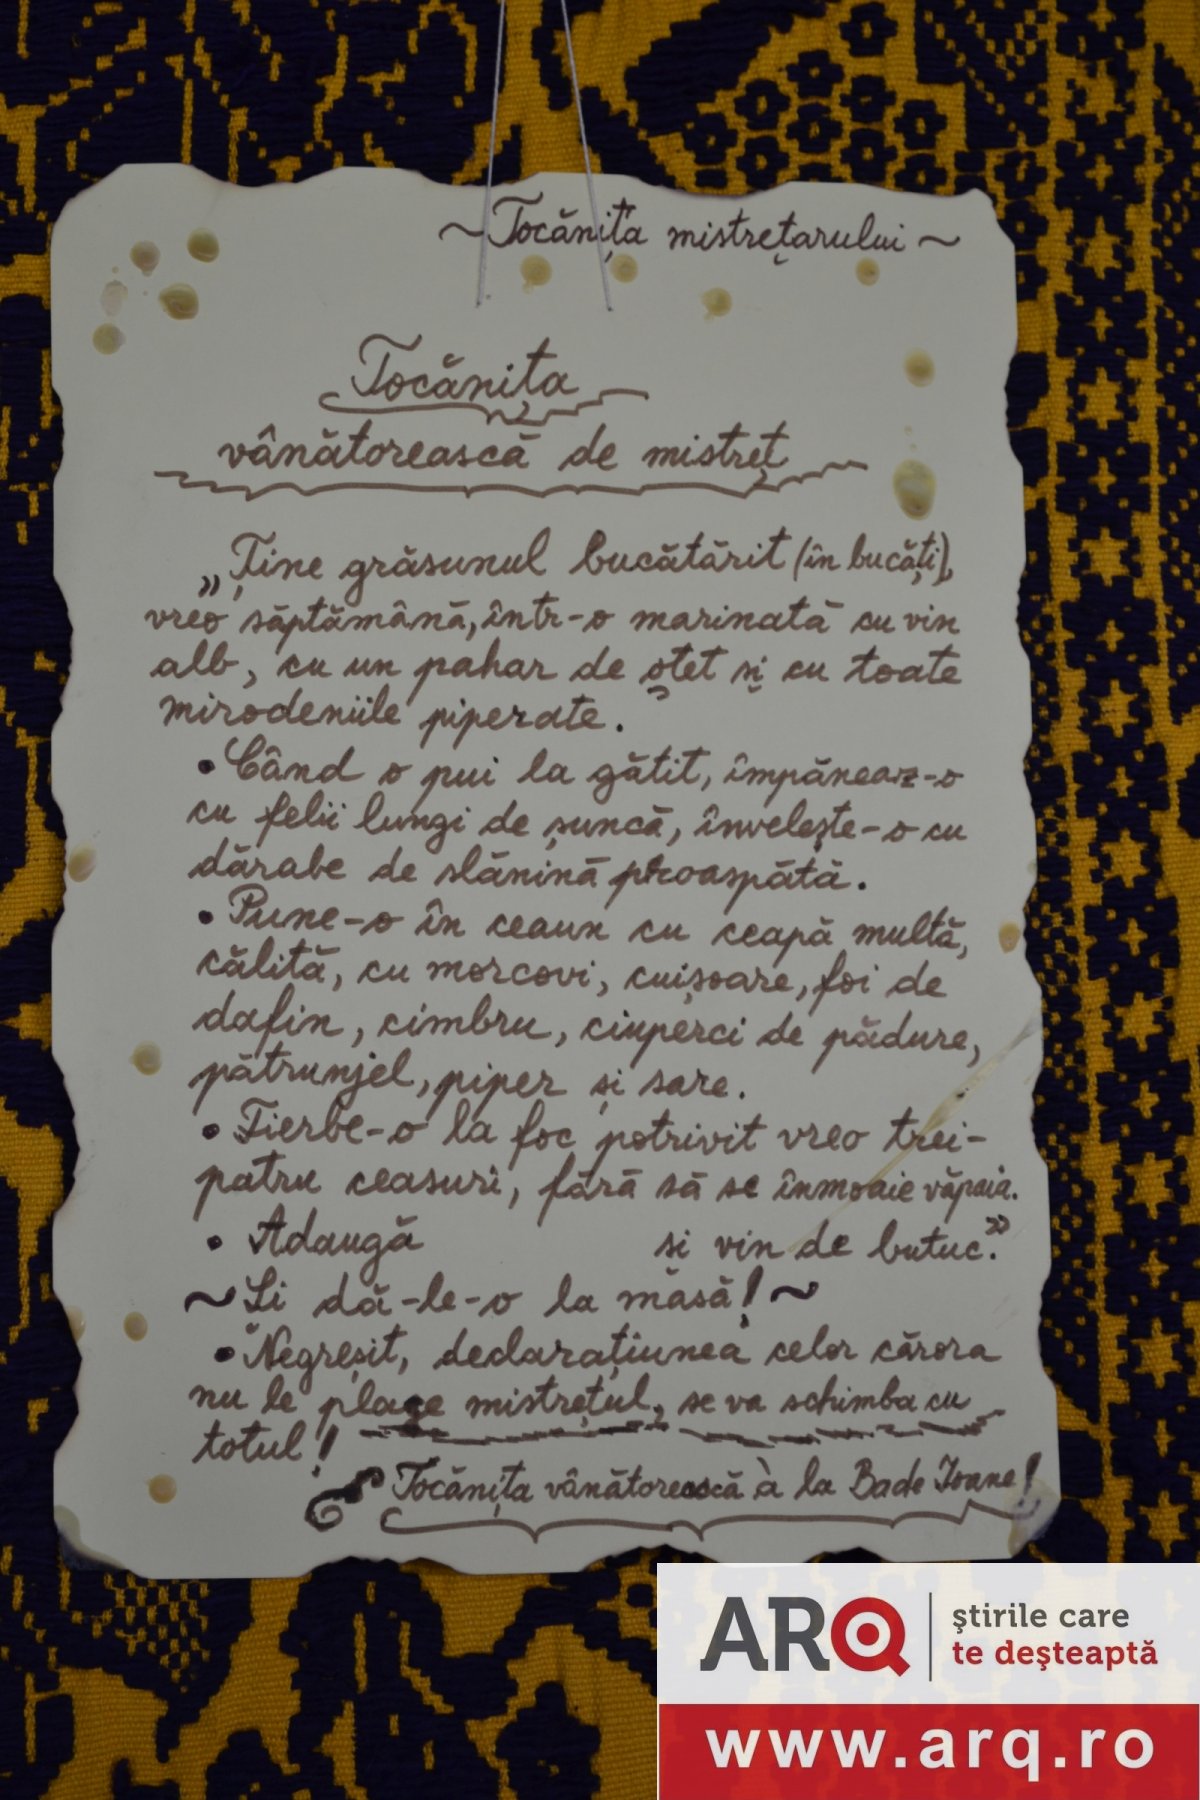 ~Tocănița mistrețarului~
Tocănița
vânătorească de mistreț
„Ține grăsunul bucătărit (în bucăți),
vreo săptămână, într-o marinată cu vin
alb, cu un pahar de oțet și cu toate
mirodeniile piperate.
• Când o pui la gătit, împănează-o
cu felii lungi de șuncă, învelește-o cu
dărabe de slănină proaspătă.
• Pune-o în ceaun cu ceapă multă,
călită, cu morcovi, cuișoare, foi de
dafin, cimbru, ciuperci de pădure,
pătrunjel, piper și sare.
• Fierbe-o la foc potrivit vreo trei-
patru ceasuri, fără să se înmoaie văpaia.
• Adaugă si vin de butuc.”
~Și dă-le-o la masă!~
• Negreșit, declarațiunea celor cărora
nu le place mistrețul, se va schimba cu
totul!
Tocănița vânătorească à la Bade Ioane!
ARQ
știrile care
te deșteaptă
www.arq.ro